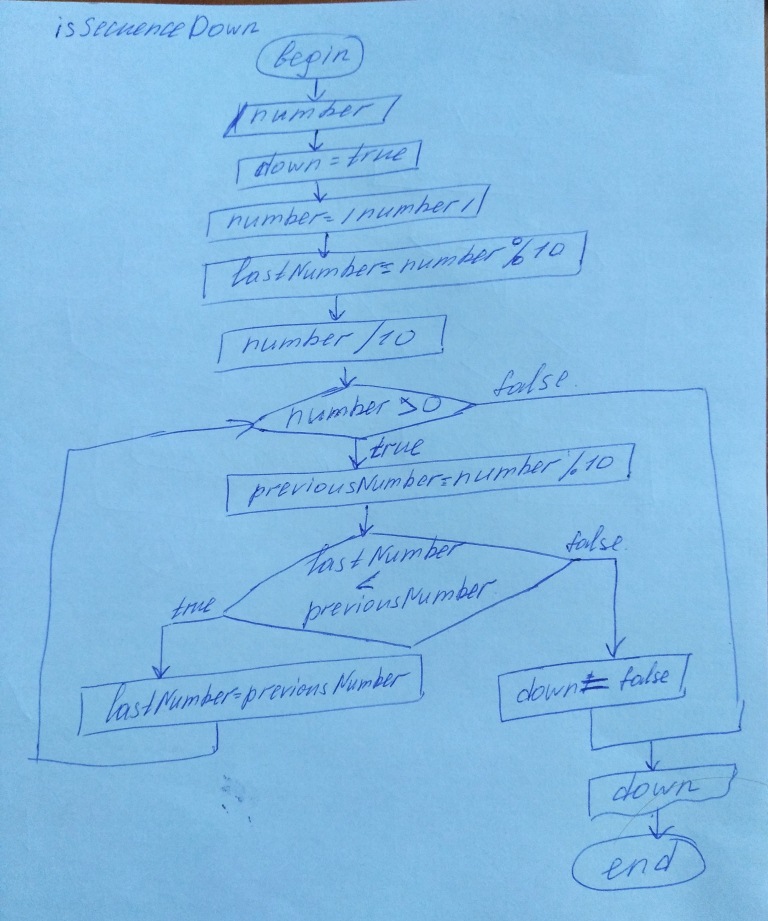 isSecuenceDown
begin
number
down = true
number = |number|
lastNumber = number % 10
number / 10
number > 0
false
true
previousNumber = number % 10
lastNumber
<
previousNumber
false
true
lastNumber = previousNumber
down = false
down
end